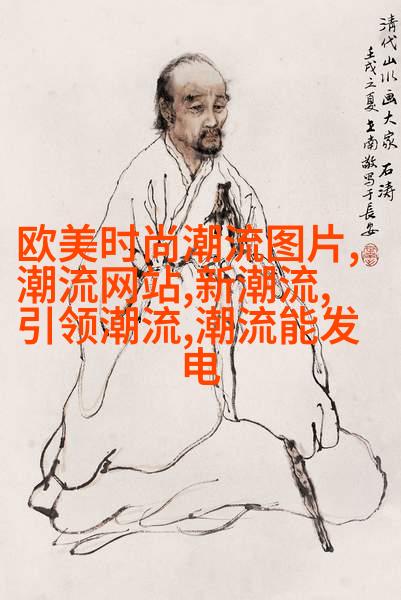 清代山水画大家 石涛
壬戌之夏 圭南敬写于長安
欧美时尚潮流图片,
潮流网站,新潮流,
引领潮流,潮流能发
电